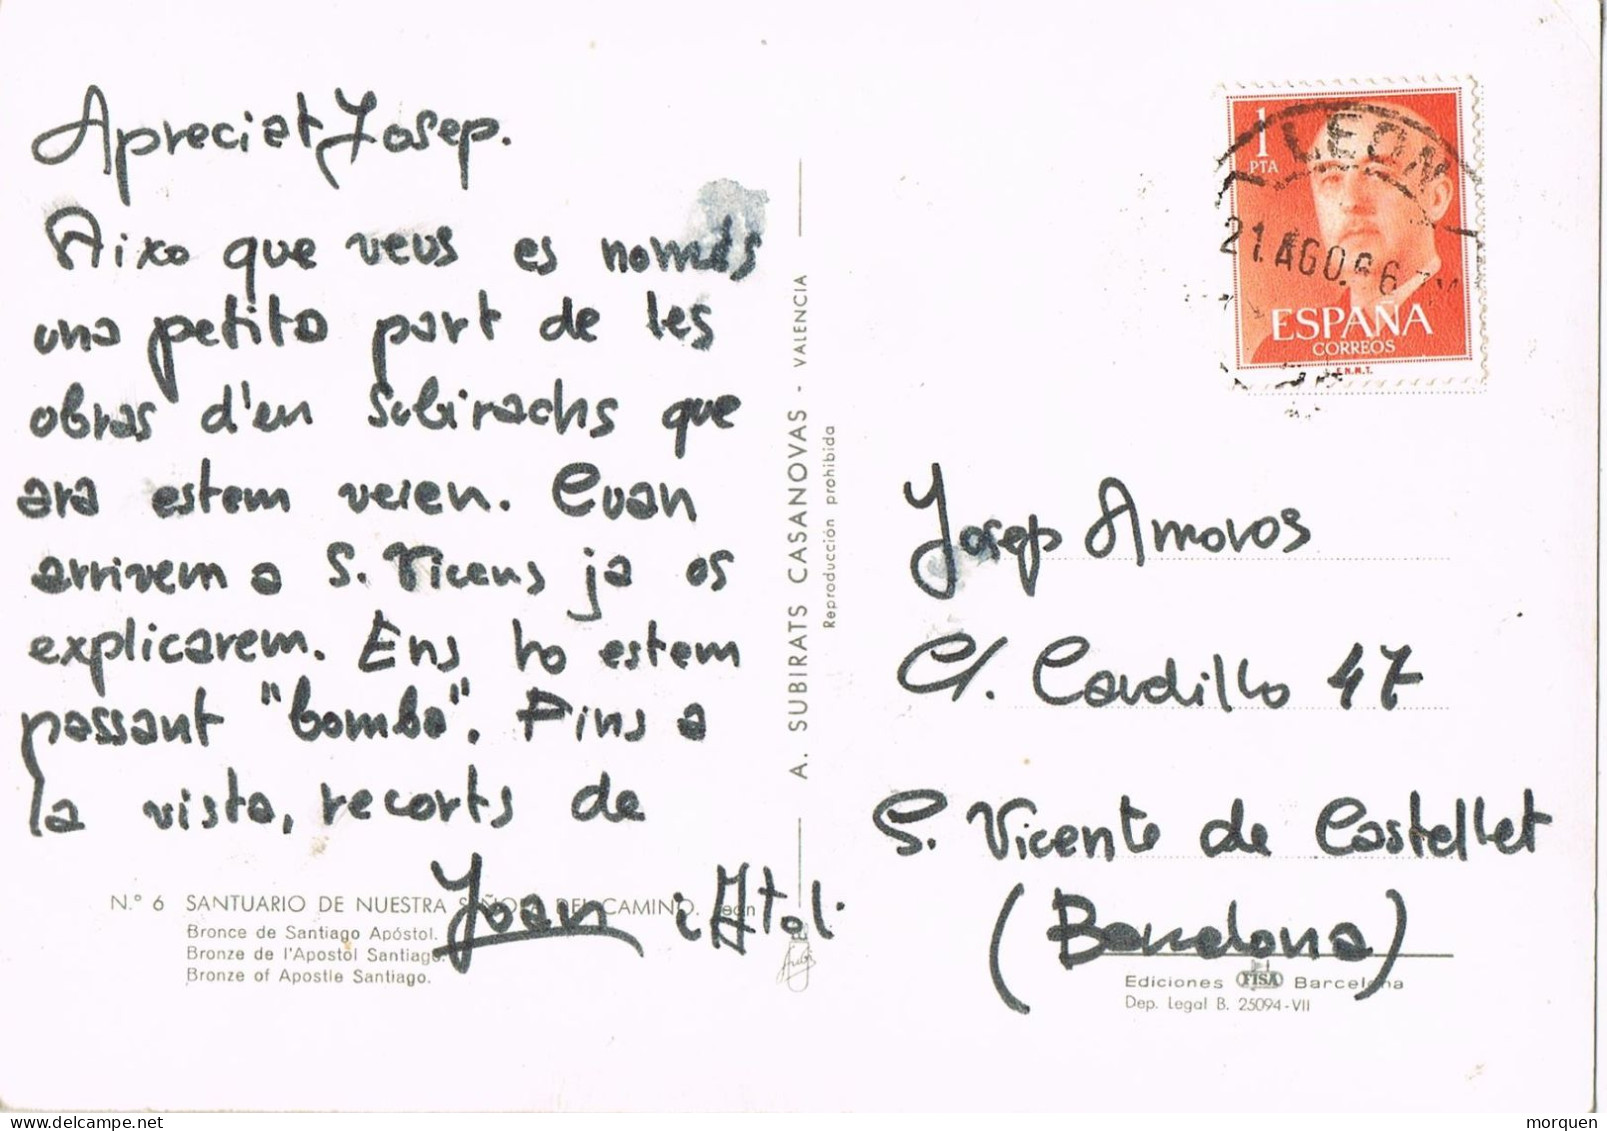 Apreciat Josep.
Aixo que veus es només
una petita part de les
obras d'en Subirachs que
ara estem veien. Cuan
arrivem a S. Vicens ja os
explicarem. Ens ho estem
passant "bomba". Fins a
la vista, recorts de
Joan i Atol.
N.º 6 SANTUARIO DE NUESTRA SEÑORA DEL CAMINO. León
Bronce de Santiago Apóstol.
Bronze de l'Apostol Santiago.
Bronze of Apostle Santiago.
A. SUBIRATS CASANOVAS - VALENCIA
Reproducción prohibida
1
PTA
LEON
21.AGO.66
ESPAÑA
CORREOS
F.N.M.T.
Josep Amoros
C/. Cardillo 47
S. Vicente de Castellet
(Barcelona)
Ediciones FISA Barcelona
Dep. Legal B. 25094-VII
morquen